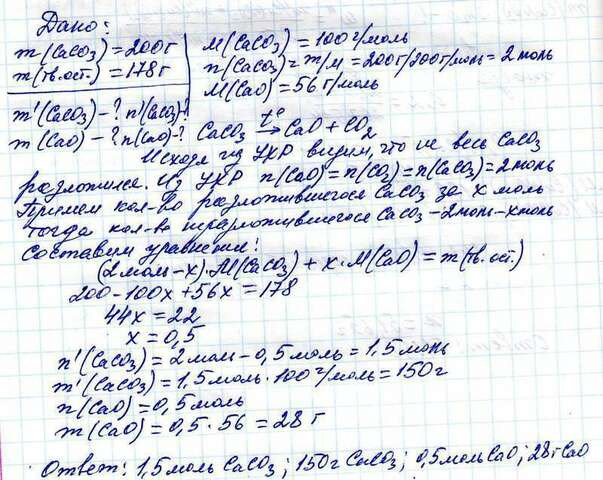 Дано:
m(CaCO₃) = 200г
m(тв.ост.) = 178г
m'(CaCO₃) - ? n'(CaCO₃)-?
m(CaO) - ? n(CaO)-?
M(CaCO₃) = 100г/моль
n(CaCO₃) = m/M = 200г/100г/моль = 2 моль
M(CaO) = 56 г/моль
CaCO₃ →t° CaO + CO₂
Исходя из УХР видим, что не весь CaCO₃
разложился. Из УХР n(CaO) = n(CO₂) = n(CaCO₃) = 2 моль
Примем кол-во разложившегося CaCO₃ за x моль
тогда кол-во неразложившегося CaCO₃ - 2моль-xмоль
Составим уравнение:
(2моль-x)·M(CaCO₃) + x·M(CaO) = m(тв.ост.)
200-100x+56x = 178
44x = 22
x = 0,5
n'(CaCO₃) = 2моль-0,5моль = 1,5моль
m'(CaCO₃) = 1,5моль·100г/моль = 150г
n(CaO) = 0,5моль
m(CaO) = 0,5·56 = 28 г
Ответ: 1,5моль CaCO₃; 150г CaCO₃; 0,5моль CaO; 28г CaO